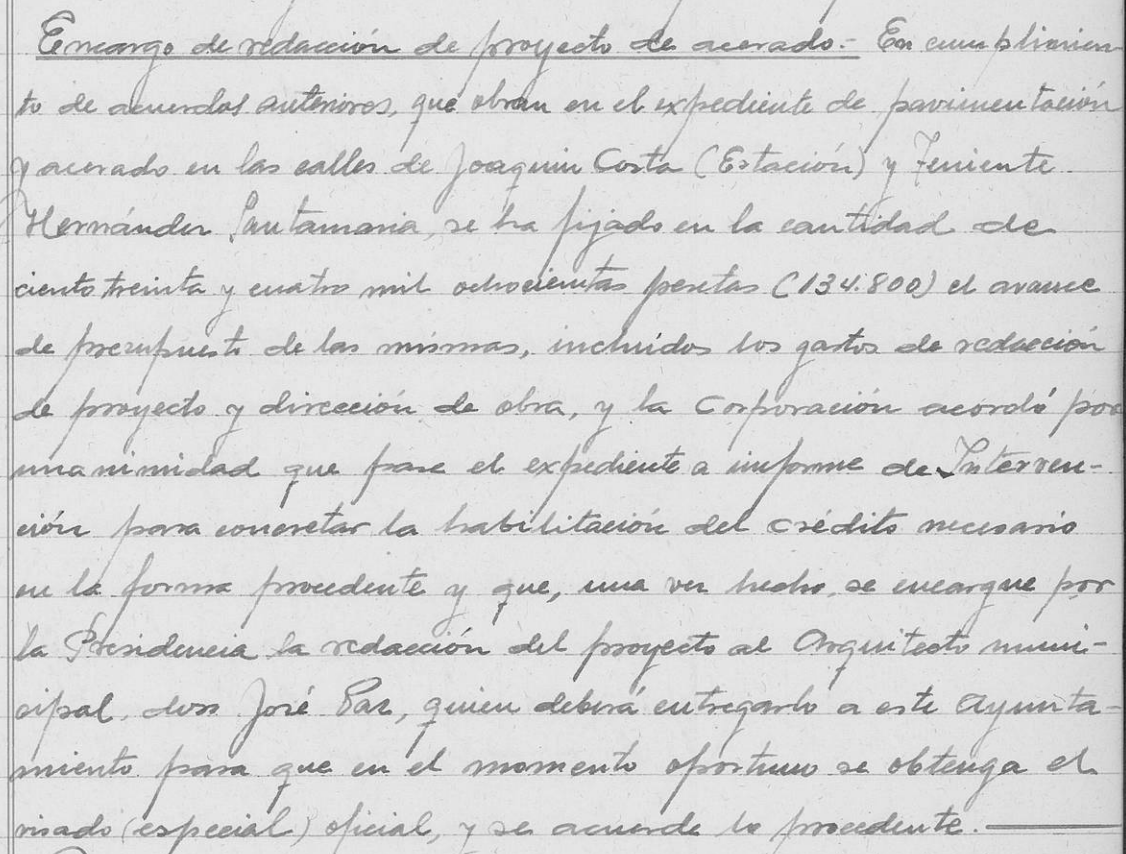 Encargo de redacción de proyecto de acerado.- En cumplimien-
to de acuerdos anteriores, que obran en el expediente de pavimentación
y acerado en las calles de Joaquin Costa (Estación) y Teniente
Hernández Santamaria, se ha fijado en la cantidad de
ciento treinta y cuatro mil ochocientas pesetas (134.800) el avance
de presupuesto de las mismas, incluidos los gastos de redacción
de proyecto y dirección de obra, y la Corporación acordó por
unanimidad que pase el expediente a informe de Interven-
ción para concretar la habilitación del crédito necesario
en la forma procedente y que, una vez hecho, se encargue por
la Presidencia la redacción del proyecto al Arquitecto muni-
cipal, don José Paz, quien deberá entregarlo a este Ayunta-
miento para que en el momento oportuno se obtenga el
visado (especial) oficial, y se acuerde lo procedente.